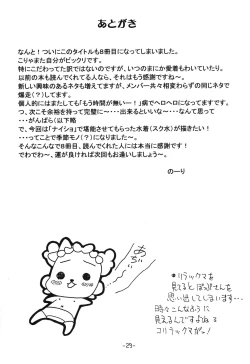 あとがき
なんと！ついにこのタイトルも8冊目になってしまいました。
こりゃまた自分がビックリです。
特にこだわってた訳ではないのですが、いつのまにか愛着もわいていたり。
以前の本も読んでくれてる人なら、それはもう感謝ですね～。
新しい興味のあるネタも増えてますが、メンバー共々相変わらずの同じネタで
爆走(？)してます。
個人的にはまたしても「もう時間が無いー！」病でヘロヘロになってますです。
つ、次こそ余裕を持って完璧に～・・・出来るといいな～・・・なんて
・・・がんばら(以下略
で、今回は「ナイショ」で堪能させてもらった水着(スク水)が描きたい！
・・・ってことで季節モノ(？)になりました～。
そんなこんなで8冊目、読んでくれた人には本当に感謝です！
でわでわ～、運が良ければ次回もお逢いしましょう～。
のーり
あちぃ
*リラックマを
見ると
思い出してしまいます…
時々こんなふうに
見えるんですよねぇ
コリラックマが…!
-29-